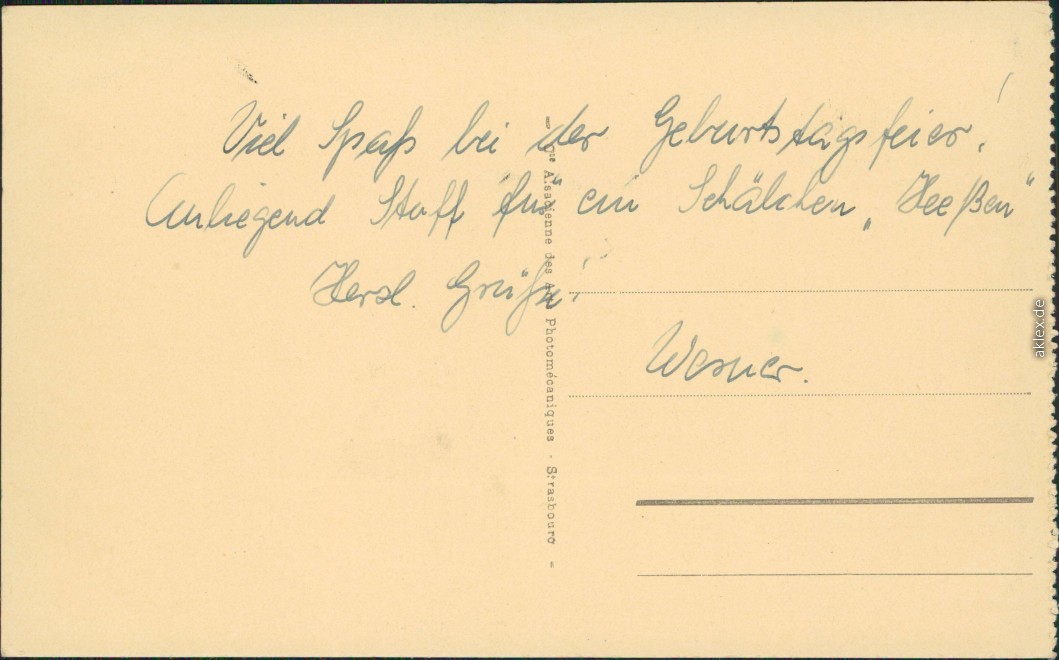 Viel Spaß bei der Geburtstagsfeier!
Anliegend Stoff für ein Schälchen „Heeßen"
Herzl. Grüße!
Werner.
- Cie Alsacienne des Arts Photomécaniques - Strasbourg -
aklex.de